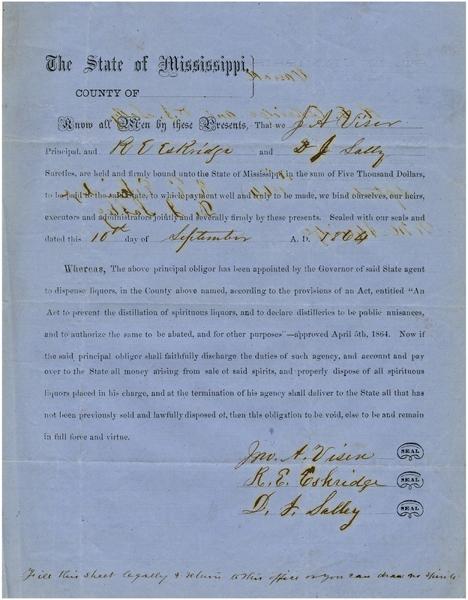 The State of Mississippi,
COUNTY OF
Know all Men by these Presents, That we J A Visen
Principal, and R E Eskridge and D J Salley
Sureties, are held and firmly bound unto the State of Mississippi in the sum of Five Thousand Dollars,
to be paid to the said State, to which payment well and truly to be made, we bind ourselves, our heirs,
executors and administrators jointly and severally firmly by these presents. Sealed with our seals and
dated this 10th day of September A. D. 1864
Whereas, The above principal obligor has been appointed by the Governor of said State agent
to dispense liquors, in the County above named, according to the provisions of an Act, entitled "An
Act to prevent the distillation of spirituous liquors, and to declare distilleries to be public nuisances,
and to authorize the same to be abated, and for other purposes"—approved April 5th, 1864. Now if
the said principal obligor shall faithfully discharge the duties of such agency, and account and pay
over to the State all money arising from sale of said spirits, and properly dispose of all spirituous
liquors placed in his charge, and at the termination of his agency shall deliver to the State all that has
not been previously sold and lawfully disposed of, then this obligation to be void, else to be and remain
in full force and virtue.
Jno. A. Visen SEAL
R. E. Eskridge SEAL
D. J. Salley SEAL
Fill this sheet legally & return to this office or you can draw no spirits